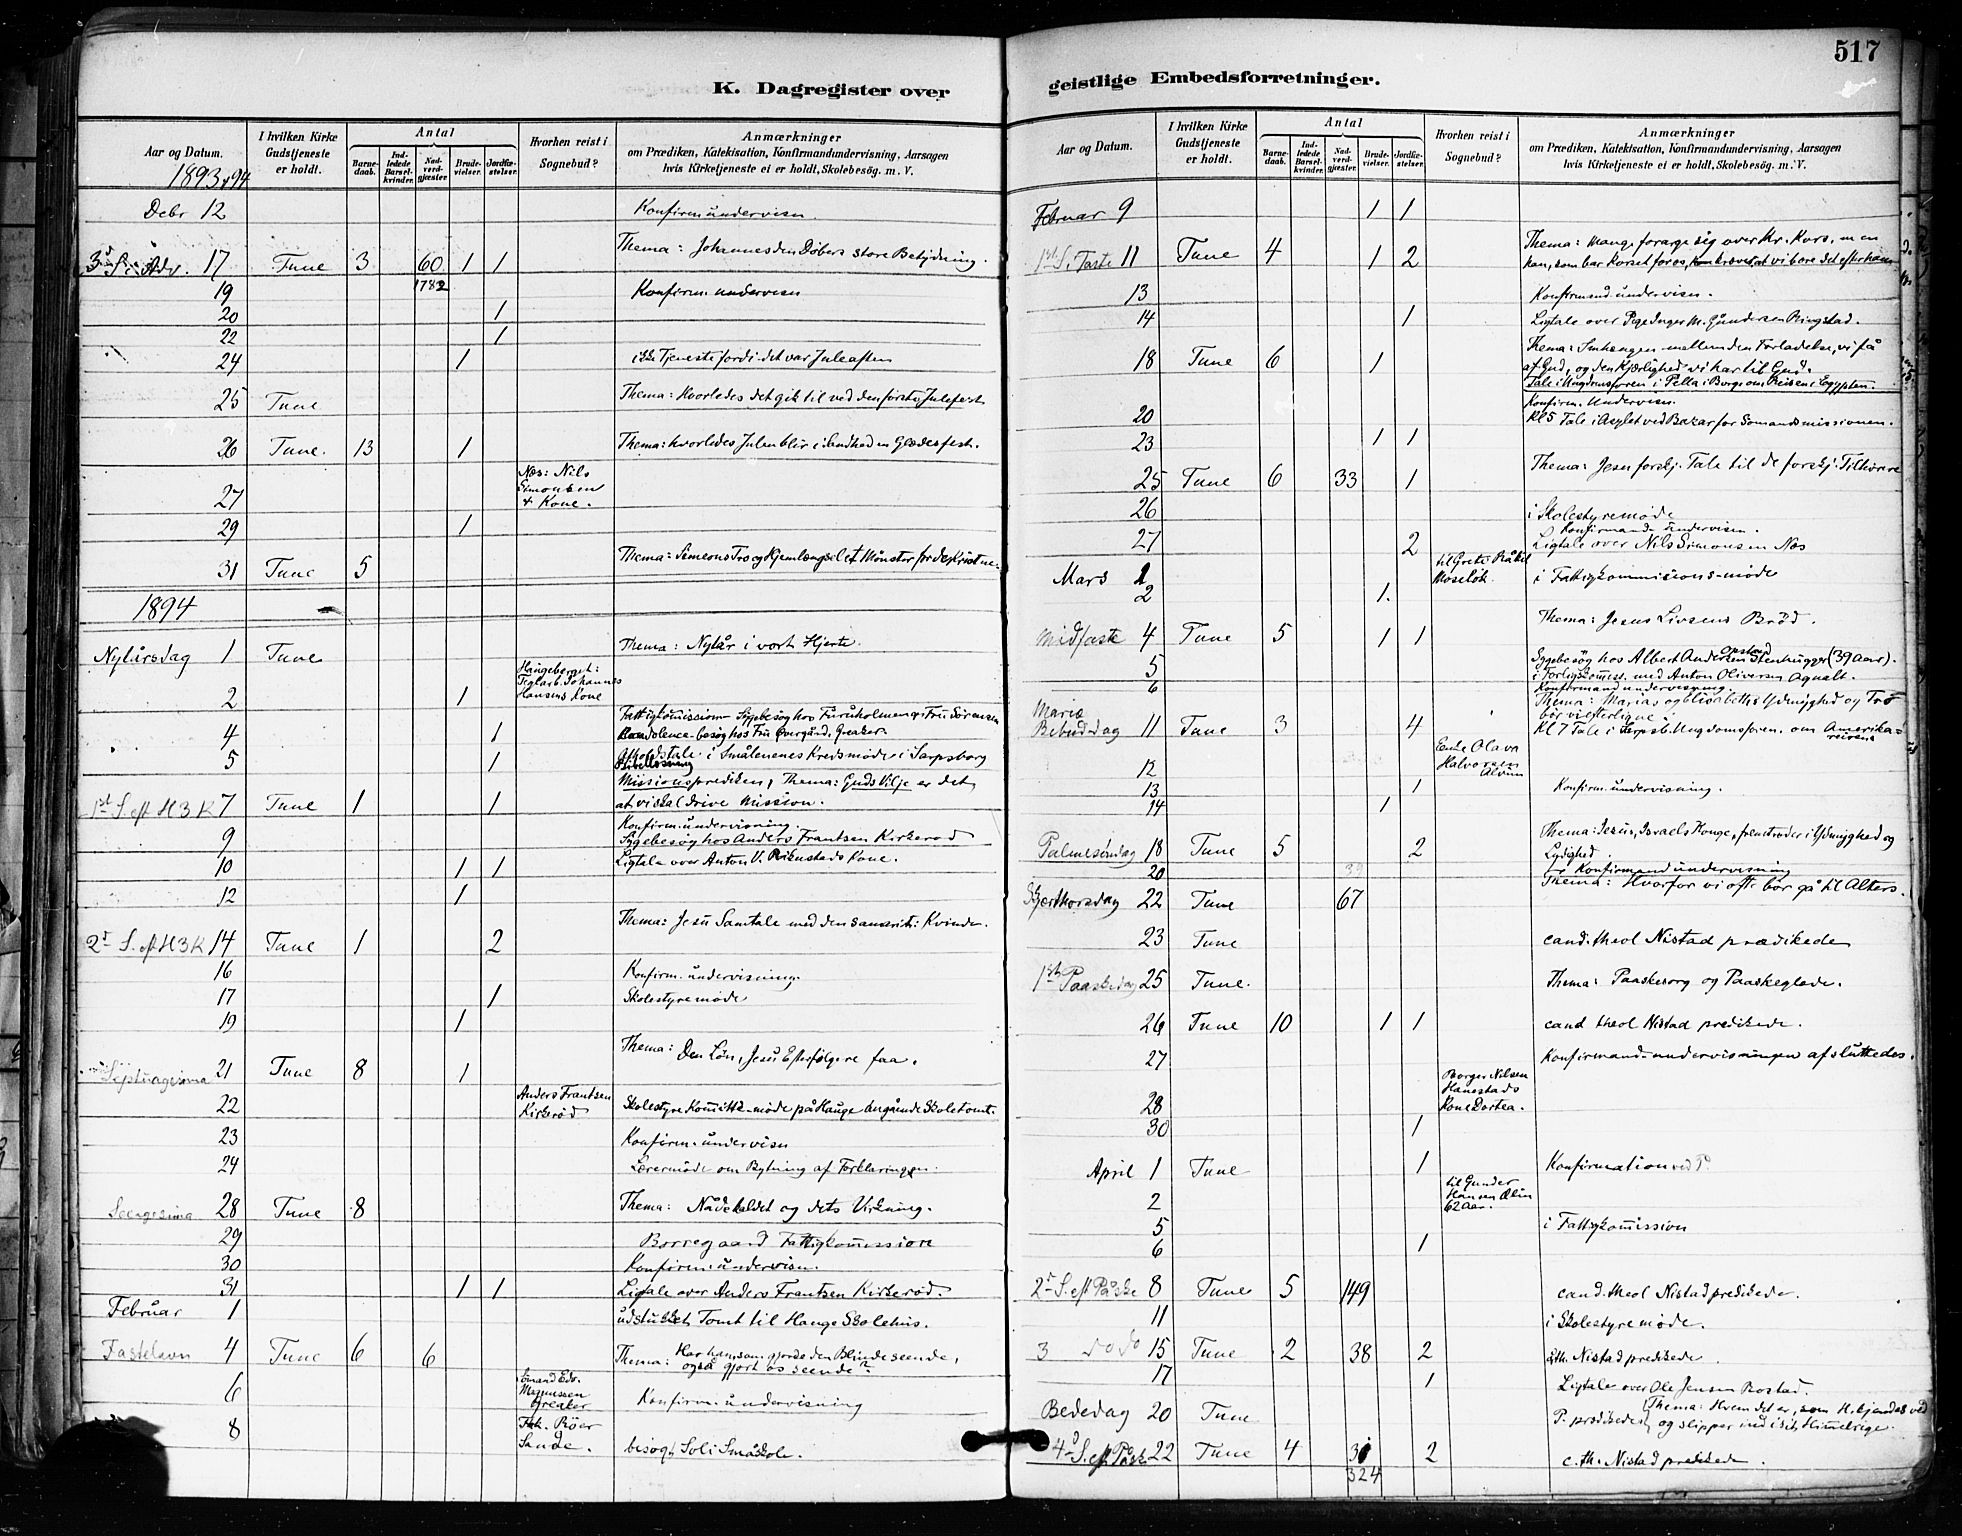 517
K. Dagregister over
geistlige Embedsforretninger.
Aar og Datum.
I hvilken Kirke Gudstjeneste er holdt.
Antal
Barnedaab.
Indledede Barselkvinder.
Nadverdgjæster.
Brudevielser.
Jordfæstelser.
Hvorhen reist i Sognebud?
Anmærkninger
om Prædiken, Katekisation, Konfirmandundervisning, Aarsagen
hvis Kirketjeneste ei er holdt, Skolebesøg. m. V.
1893 94
Debr 12 Konfirm undervisn.
3d S. i Adv. 17 Tune 3 60 1 1 Thema: Johannes den Døbers store Betydning.
1782
19 Konfirm. undervisn
20 1
22 1
24 1 ikke Tjeneste fordi det var Juleaften
25 Tune Thema: Hvorledes det gik til ved den første Julefest
26 Tune. 13 1 Thema: hvorledes Julen blir i Sandhed en Glædesfest.
27 Næs: Nils Simonsen & Kone.
29 1
31 Tune 5 Thema: Simeons Tro og Hjemlængsel et Mønster for de Kristne
1894
Nytårsdag 1 Tune Thema: Nytår i vort Hjerte
2 1 Haugeberget: Teglarb. Johannes Hansens Kone
4 1 Fattigkomission Sygebesøg hos Furuholmen & Fru Sørensen
Kondolence-besøg hos Fru Overgård, Greaker
5 1 Afholdstale i Smålenenes Kredsmøde i Sarpsborg
Bibellæsning
1st S. eft H 3 K 7 Tune 1 1 Missionsprediken, Thema: Guds Vilje er det
at vi skal drive Mission.
9 Konfirm. undervisning.
Sygebesøg hos Anders Frantsen Kirkerød
10 1 1 Ligtale over Anton V. Rikenstads Kone.
12 1
2d S. eft H 3 K 14 Tune 1 2 Thema: Jesu Samtale med den samarit: Kvinde.
16 Konfirm. undervisning.
17 1 Skolestyremøde
19 1
Septuagesima 21 Tune 8 1 Thema: Den Løn, Jesu Efterfølgere faa.
22 Anders Frantsen Kirkerød Skolestyre Komitte-møde på Hauge angående Skoletomt.
23 Konfirm. undervisn
24 Lærermøde om Bytning af Forklaringen.
Sexagesima 28 Tune 8 Thema: Nådekaldet og dets Virkning.
29 Borregaard Fattigkomission
30 Konfirm. undervisn.
31 1 1 Ligtale over Anders Frantsen Kirkerød.
Februar 1 udstukket Tomt til Hauge Skolehus.
Fastelavn 4 Tune 6 6 Thema: Har han, som gjorde den Blinde seende,
også gjort os seende?
6 Edv. Magnussen Greaker Konfirm. undervisning
8 Fåk. Röer Sande. besøgt Soli Småskole.
Aar og Datum.
I hvilken Kirke Gudstjeneste er holdt.
Antal
Barnedaab.
Indledede Barselkvinder.
Nadverdgjæster.
Brudevielser.
Jordfæstelser.
Hvorhen reist i Sognebud?
Anmærkninger
om Prædiken, Katekisation, Konfirmandundervisning, Aarsagen
hvis Kirketjeneste ei er holdt, Skolebesøg. m. V.
Februar 9 1 1
1st S. i Faste 11 Tune 4 1 2 Thema: Mange forarge sig over Kr. Kors, men
han, som bar Korset for os, kræver at vi bære det efter ham
13 Konfirmand undervisn.
14 1 Ligtale over Pige Inger M. Gundersen Ringstad.
18 Tune 6 1 Thema: Smhængen mellem den Forladelse, vi få
af Gud, og den Kjærlighed vi har til Gud.
Tale i Ungdomsforen i Pella i Borge om Reisen i Egypten.
20 Konfirm. Undervisn.
Kl 5 Tale i Asylet ved Bazar for Sømandsmissionen.
23 1 1
25 Tune 6 33 1 Thema: Jesu forskj. Tale til de forskj. Tilhørere
26 i Skolestyremøde
Konfirmand undervisn.
27 2 Ligtale over Nils Simonsen Næs
Mars 1 til Grete Råkil Moseløk. i Fattigkommissions-møde
2 1.
Midfaste 4 Tune 5 1 1 Thema: Jesus Livsens Brød.
5 Sygebesøg hos Albert Andersen Opstad Stenhugger (39 aar).
i Forligskomiss. med Anton Oliversen Agnalt.
6 Konfirmandundervisning.
Mariæ Bebud.dag 11 Tune 3 4 Thema: Marias og Elisabeths Ydmyghed og Tro
bør vi efterligne.
Kl 7 Tale i Sarpsb. Ungdomsforen. om Amerikareisen
12 Enke Olava Halvorsen Alvim
13 1 Konfirm. undervisning.
14 1
Palmesøndag 18 Tune 5 2 Thema: Jesus, Israels Konge, fremtræder i Ydmyghed og
Lydighed.
20 39 Konfirmandundervisning
Skjærthorsdag 22 Tune 67 Thema: Hvorfor vi ofte bør gå til Alters.
23 Tune cand. theol Nistad prædikede
1ste Paaskedag 25 Tune. Thema: Paaskesorg og Paaskeglæde.
26 Tune 10 1 1 cand theol Nistad predikede.
27 Konfirmand-undervisningen afsluttedes.
28 Borger Nilsen Hanestads Kone Dortea.
30 1
April 1 Tune 1 Konfirmation ved P.
2 til Gunder Hansen Ølin 62 aar.
5 i Fattigkomission
6 1
2d S. eft Påske 8 Tune 5 149 cand. theol Nistad predikede.
11 i Skolestyremøde.
3 do do 15 Tune 2 38 2 cth. Nistad predikede.
17 1 Ligtale over Ole Jensen Bostad.
Bededag 20 Tune P. prædikede Thema: Hvem det er, som H. kjendes ved
og slipper ind i sit Himmelrige.
4d S. eft Påske 22 Tune 4 2 c. th. Nistad predikede.
324